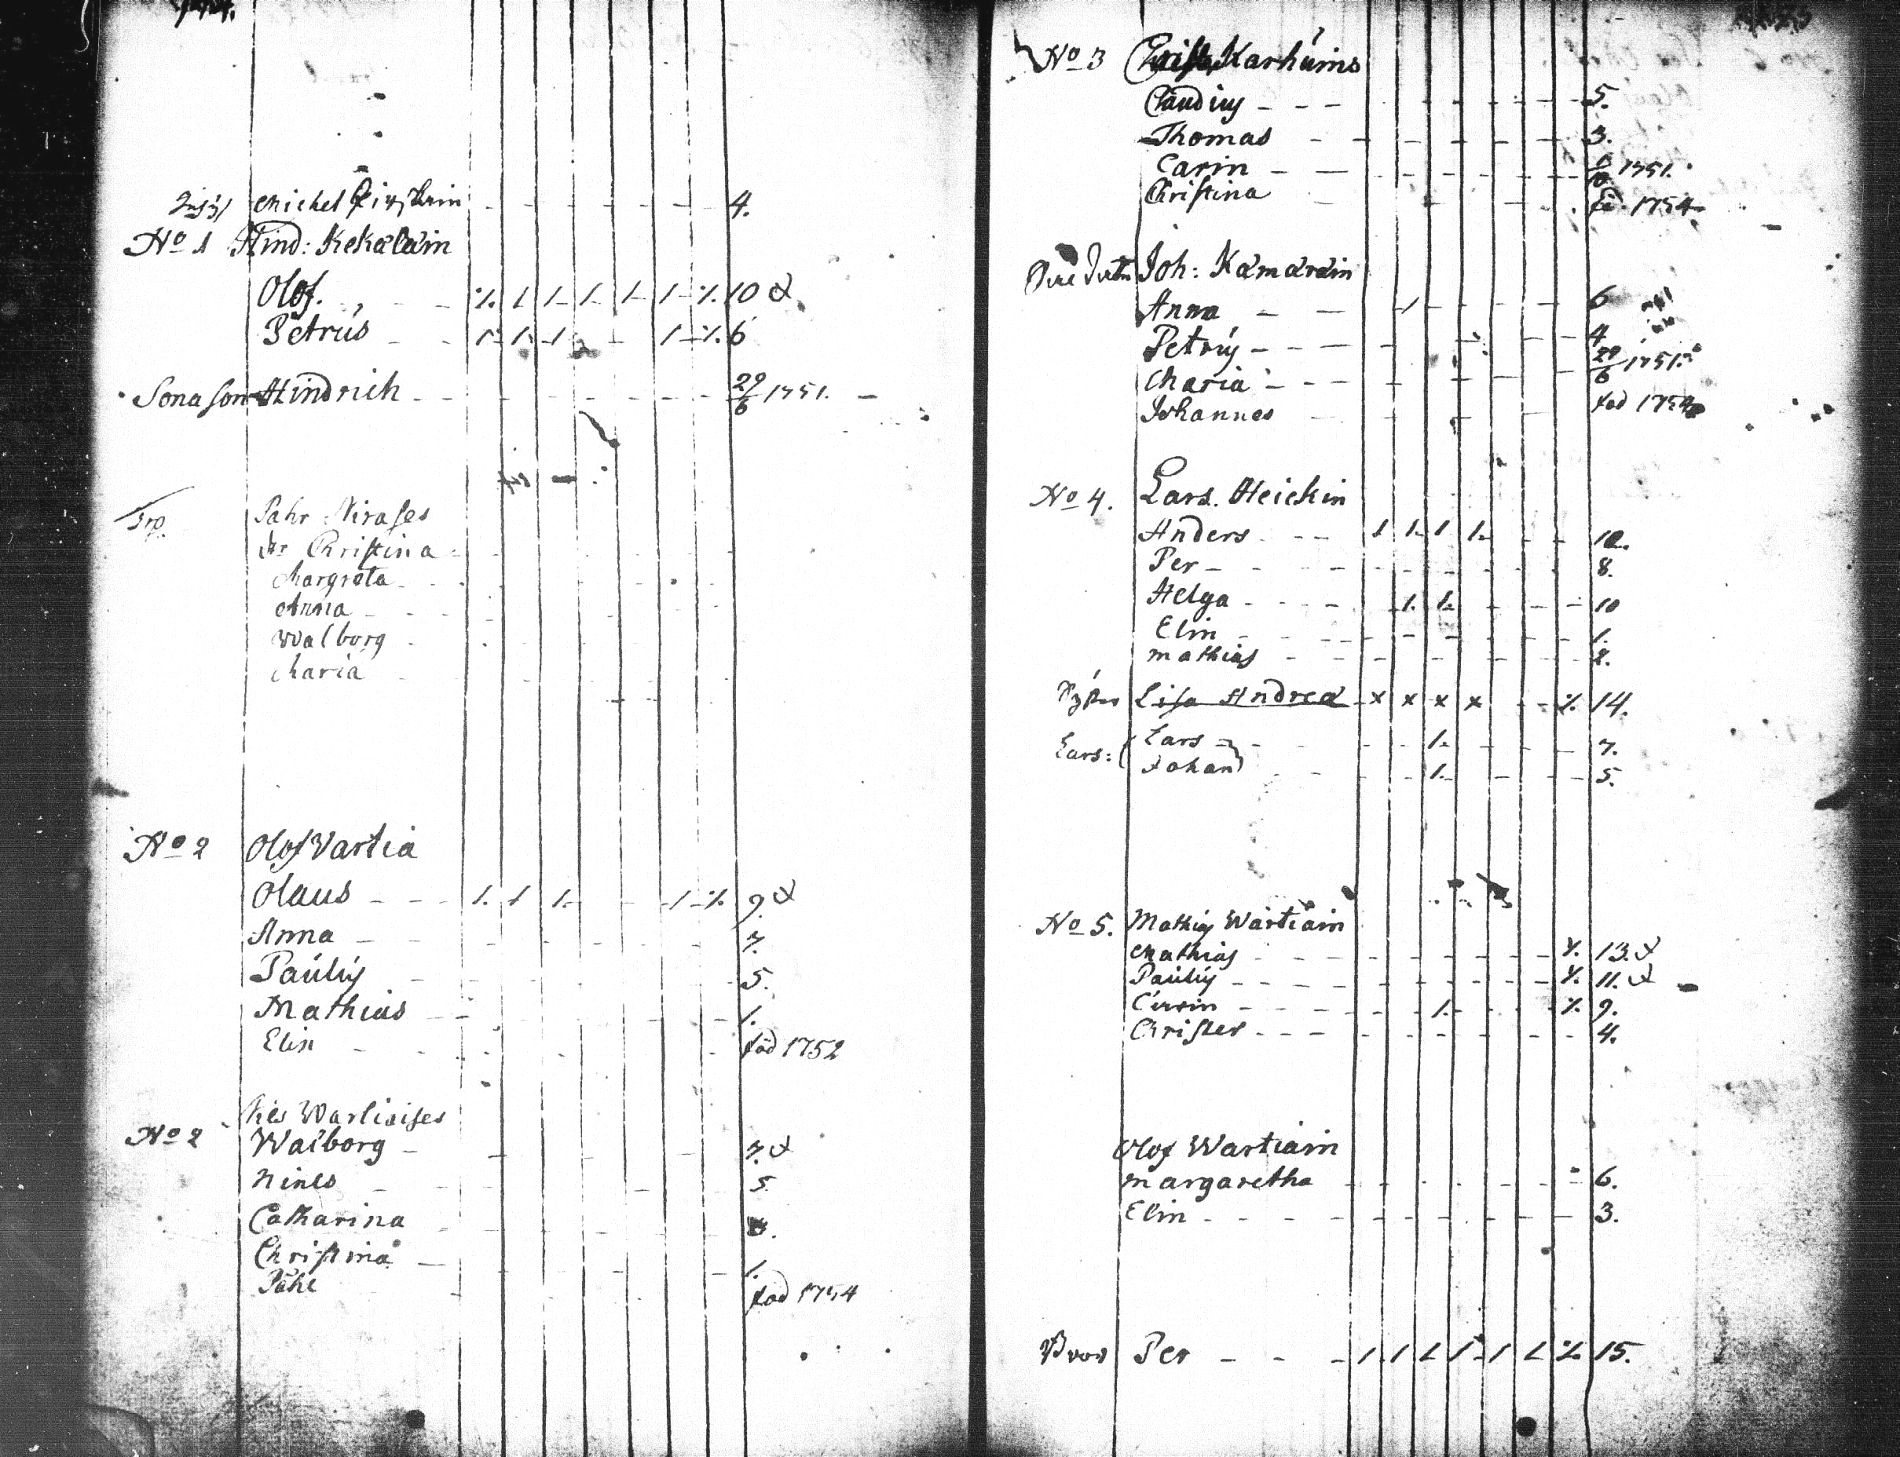 Michel 4.
No 1 Hind: Kekäläin
Olof. 10
Petrus 6
Sonason Hindrich 29/6 1751.
Påhr
Christina
Margreta
Anna
Walborg
Maria
No 2 Olof Vartia
Olaus 9.
Anna 7.
Paulus 5.
Mathias 1.
Elin föd 1752
No 2 Nils
Walborg 7.
Nines 5
Catharina
Christina 1.
Påhl föd 1754
No 3 Karhuins
Claudius 5.
Thomas 3.
Carin 1751.
Christina föd 1754
Joh: Kämäräin
Anna 6
Petrus 4
Maria 29/6 1751.
Johannes föd 1754
No 4. Lars Heickin
Anders 1 1. 1 1. 12.
Per 8.
Helga 1. 1. 10
Elin 1.
Mathias 2.
Lisa Andrea x x x x 14.
Lars: Lars 1. 7.
Johan 1. 5.
No 5. Mathias Wartiain
Mathias 13.
Paulus 11.
Carin 1. 9.
Christer 4.
Olof Wartiain
Margaretha 6.
Elin 3.
Bror Per 15.